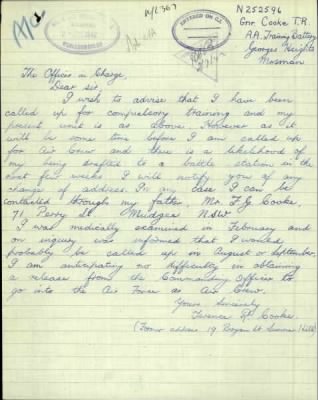 N252596
Gnr Cooke T.R.
A.A. Training Battery
Georges Heights
Mosman
ENTERED ON C.A.
The Officer in Charge,
Dear Sir,
I wish to advise that I have been
called up for compulsory training and my
present unit is as above. However as it
will be some time before I am called up
for Air Crew and there is a likelihood of
my being drafted to a battle station in the
next few weeks I will notify you of any
change of address. In any case I can be
contacted through my father, Mr. F.G. Cooke,
71 Perry St Mudgee NSW
I was medically examined in February and
on inquiry was informed that I would
probably be called up in August or September.
I am anticipating no difficulty in obtaining
a release from the Commanding Officer to
go into the Air Force as Air Crew.
Yours Sincerely
Terence R. Cooke.
(Former address 19 St Hills)